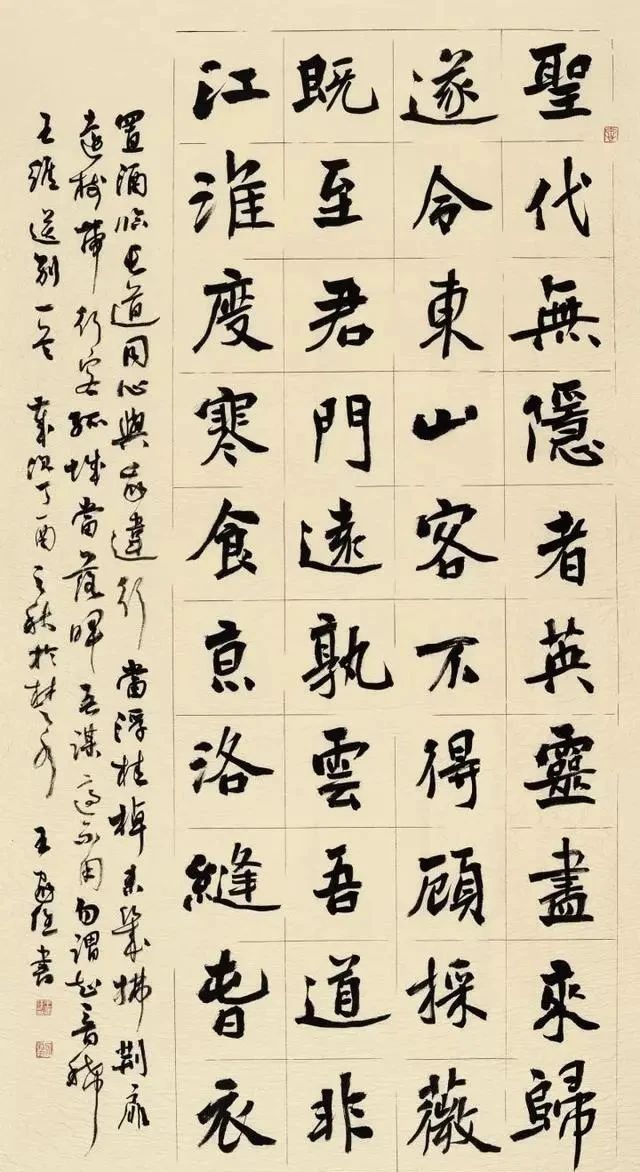 聖代無隱者英靈盡來歸
遂令東山客不得顧採薇
既至君門遠孰雲吾道非
江淮度寒食京洛縫春衣
置酒臨長道同心與我違行當浮桂棹未幾拂荆扉
遠樹帶行客孤城當落暉吾謀適不用勿謂知音稀
王維送別一首歲次丁酉之秋於楚水王書